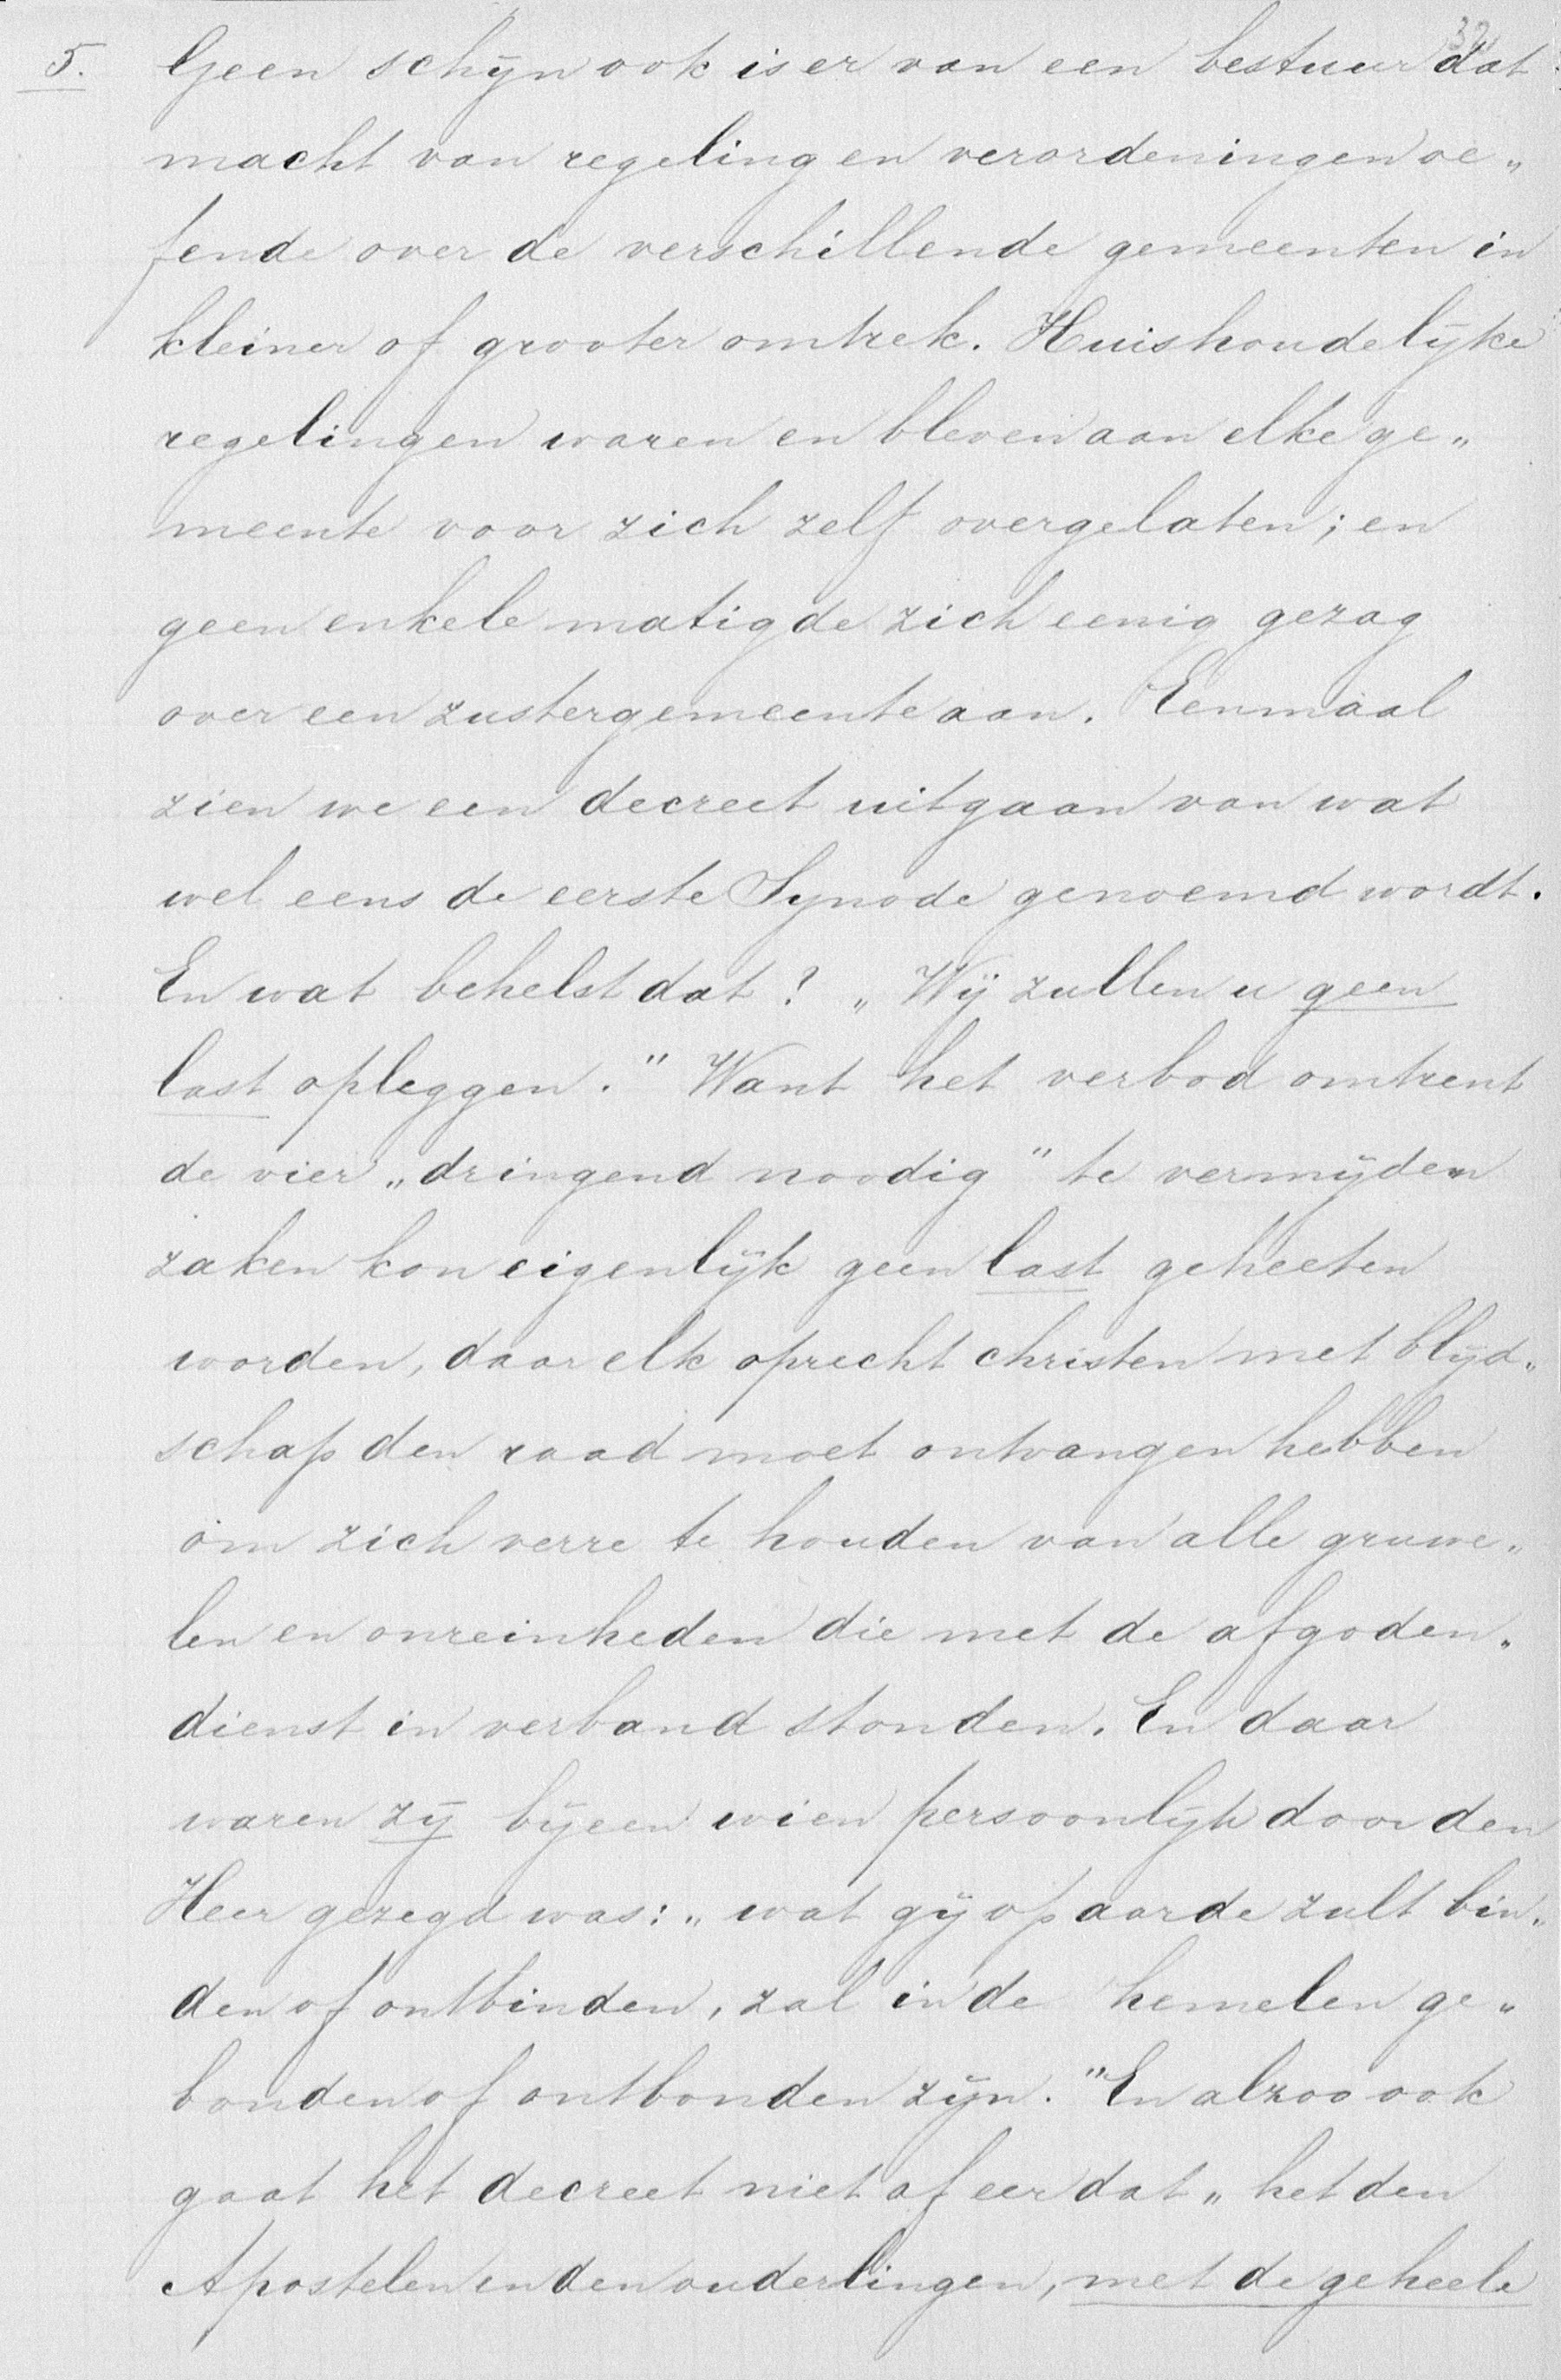 32
5. Geen schijn ook is er van een bestuur dat
macht van regeling en verordeningen oe„
fende over de verschillende gemeenten in
kleiner of grooter omtrek. Huishoudelijke
regelingen waren en bleven aan elke ge„
meente voor zich zelf overgelaten; en
geen enkele matigde zich eenig gezag
over een zustergemeente aan. Eenmaal
zien we een decreet uitgaan van wat
wel eens de eerste Synode genoemd wordt.
En wat behelst dat? „Wij zullen u geen
last opleggen." Want het verbod omtrent
de vier „dringend noodig" te vermijden
zaken kon eigenlijk geen last geheeten
worden, daar elk oprecht christen met blijd„
schap den raad moet ontvangen hebben
om zich verre te houden van alle gruwe„
len en onreinheden die met de afgoden„
dienst in verband stonden. En daar
waren zij bijeen wien persoonlijk door den
Heer gezegd was: „wat gij op aarde zult bin„
den of ontbinden, zal in de hemelen ge„
bonden of ontbonden zijn." En alzoo ook
gaat het decreet niet af eer dat „het den
Apostelen en den ouderlingen, met de geheele